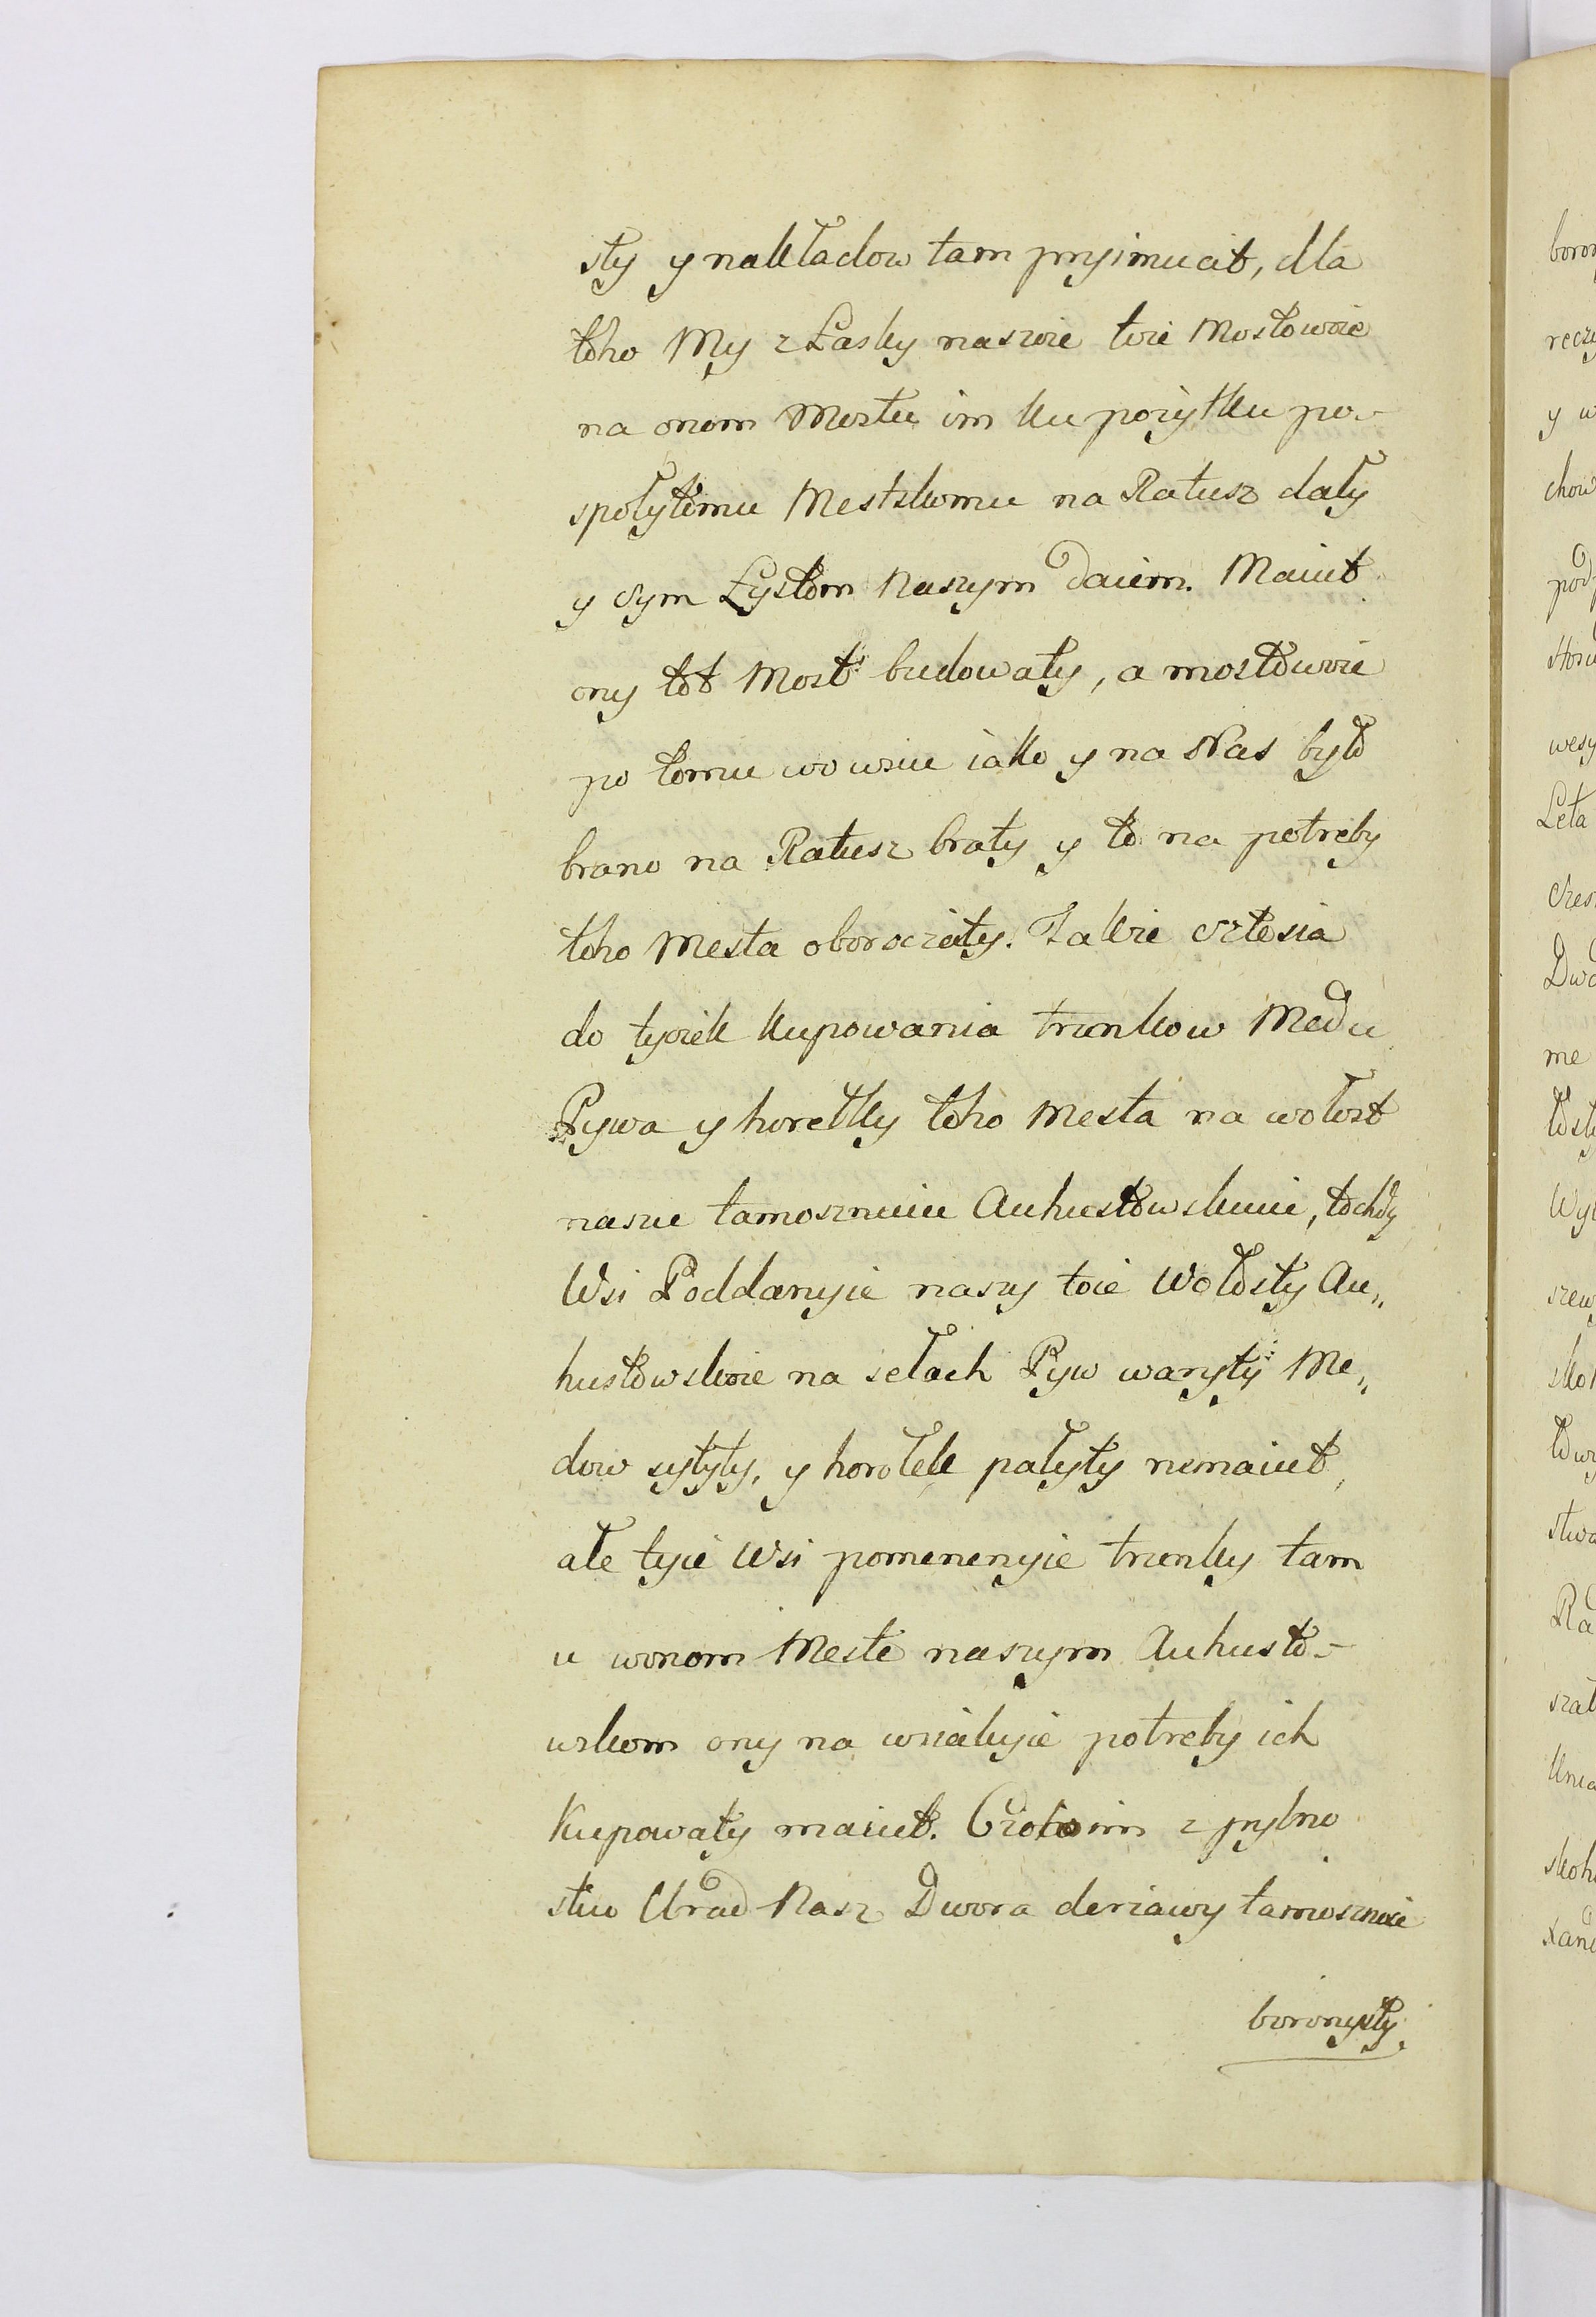 sty y nakładow tam pryimucit, dla
toho My z Łasky naszoie toie Mostowoie
na onom Mostu im ku pożytku po-
społytomu Mestskomu na Ratusz dały
y sym Łystom Naszym daiem. Maiut
ony tot Most budowaty, a mostowoie
po tomu wo wsiu iako y na Nas było
brano na Ratusz braty y to na potreby
toho Mesta oboroczaty. Takie sztosia
do tyczek kupowania trunkow Medu
Pywa y horełky toho Mesta na wołost
naszu tamosznuiu Auhustowskuiu, tohdy
Wsi Poddanyie naszy toie Wołosty Au„
hustowskoie na sełach Pyw waryty Me„
dow sytyty, y horołek pałyty nemaiut,
ałe tyie Wsi pomenenyie trunky tam
u wonom Meste naszym Auhusto-
wskom ony na wsiakyie potreby ich
Kupowaty maiut. Czoho im z pylno
stiu Urad Nasz Dwora derżawy tamosznoie
boronyty